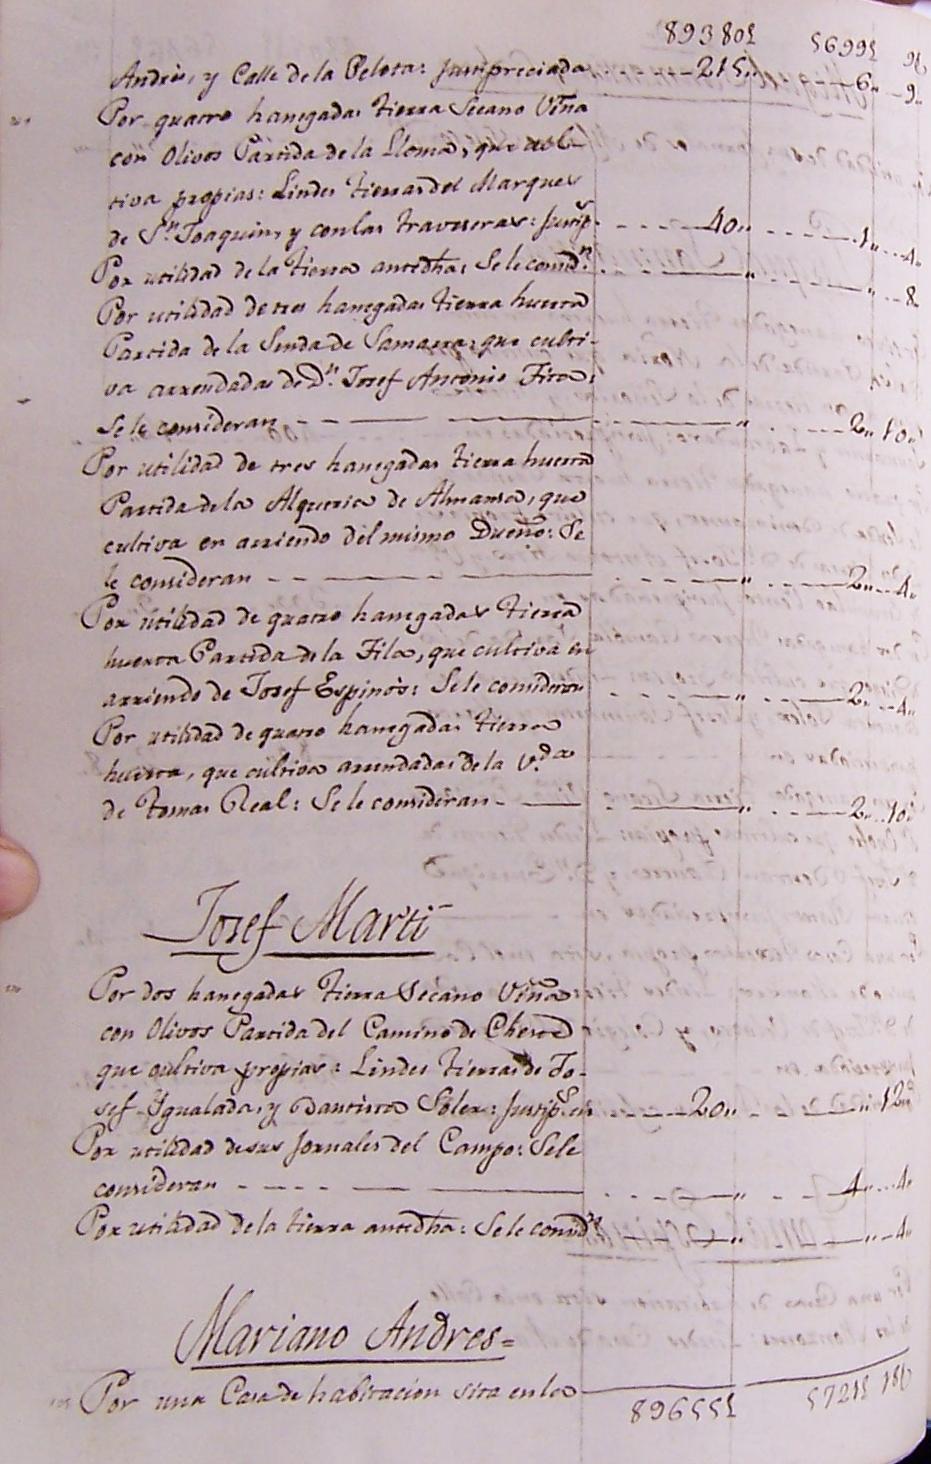 89380£ 5699£
Andrès, y Calle de la Pelota: Justipreciada 215,, 6,, 9,,
Por quatro hanegadas tierra Secano Viña
con Olivos Partida de la Lloma, que culti-
tiva propias: Lindes tierras del Marques
de Sn. Joaquin, y con las traveseras: Justip. 40,, 1,, 4,,
Por utilidad de la tierra antedha: Se le consid.n ,, ,, 8
Por utilidad de tres hanegadas tierra huerta
Partida de la Senda de Samarra, que culti-
va arrendadas de Dn. Josef Antonio Fita:
Se le consideran ,, 2,, 10,,
Por utilidad de tres hanegadas tierra huerta
Partida de la Alqueria de Almansa, que
cultiva en arriendo del mismo Dueño: Se
le consideran ,, 2,, 4,,
Por utilidad de quatro hanegadas tierra
huerta Partida de la Fila, que cultiva en
arriendo de Josef Espinòs: Se le consideran ,, 2,, 4,,
Por utilidad de quatro hanegadas tierra
huerta, que cultiva arrendadas de la V.da
de Tomas Real: Se le consideran ,, 2,, 10,,
Josef Marti
Por dos hanegadas tierra Secano Viña
con Olivos Partida del Camino de Cheste
que cultiva propias: Lindes tierras de Jo-
sef Ygualada, y Bautista Soler: Justip. en 20,, ,, 12
Por utilidad de sus Jornales del Campo: Se le
consideran ,, 4,, 4,,
Por utilidad de la tierra antedha: Se le consid.n ,, ,, 4,,
Mariano Andres=
Por una Casa de habitacion sita en la
89655£ 5721£ 18